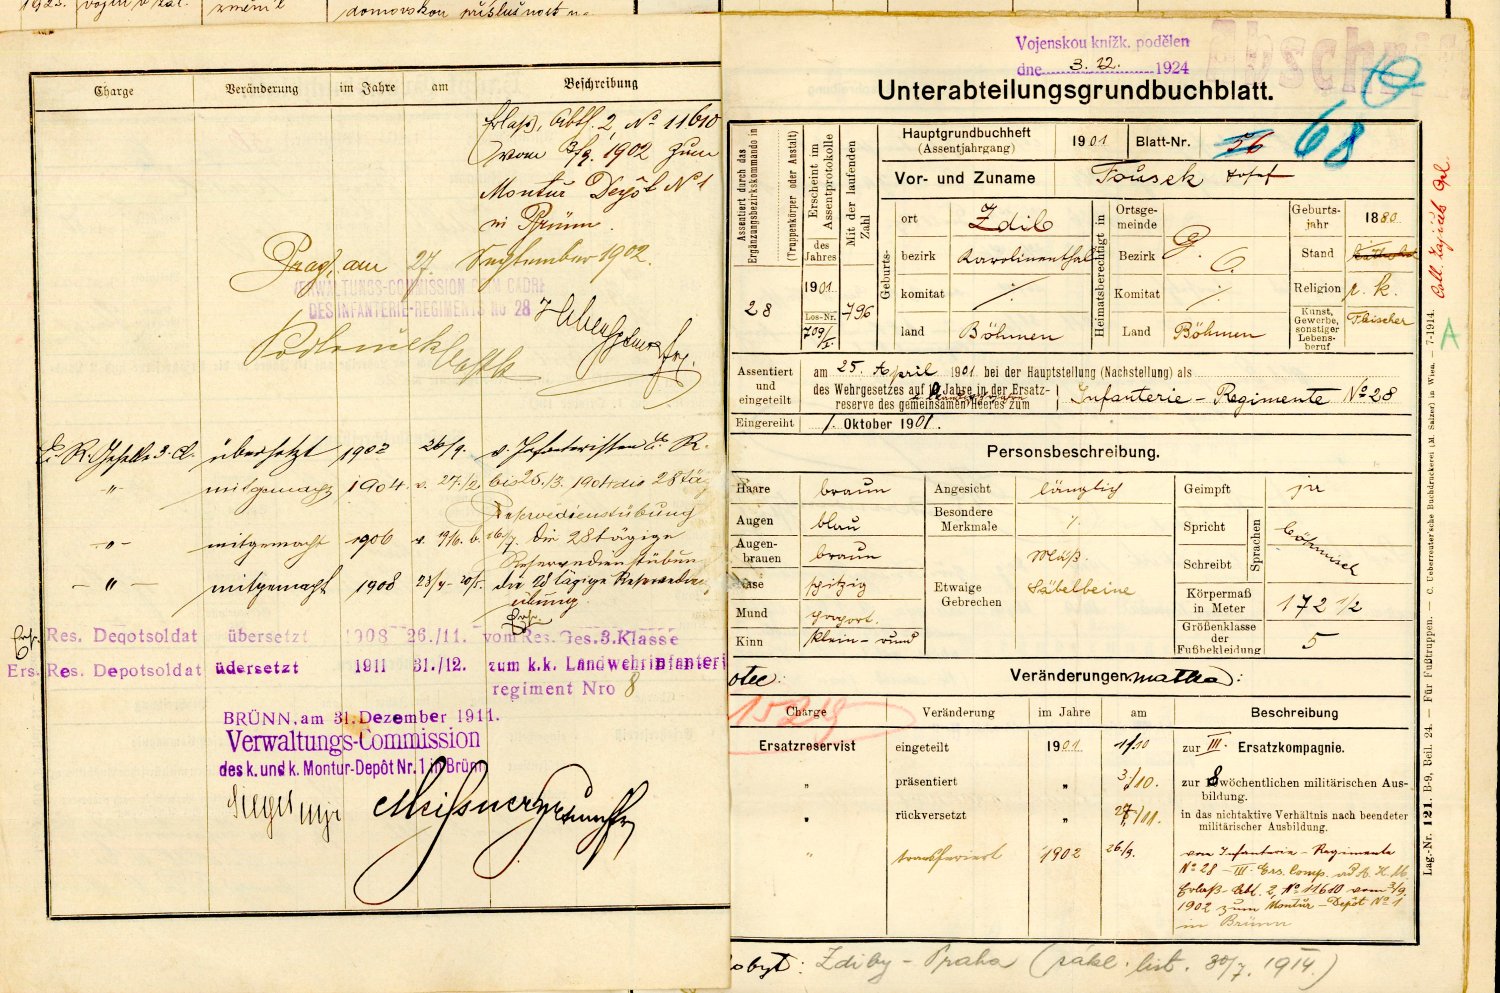 domovskou příslušnost
Charge Veränderung im Jahre am Beschreibung
Erlaß, Abth. 2, No 11610
vom 3/9. 1902 zum
Montur Depôt No 1
in Brünn.
Prag, am 27. September 1902.
VERWALTUNGS-COMMISSION DES CADRE
DES INFANTERIE-REGIMENTS No 28
übersetzt 1902 26/9. v. Infanteristen
" mitgemacht 1904 v. 27./2. bis 25./3. 1904 die 28 täg
Reservedienstübung
" mitgemacht 1906 die 28 tägige
" mitgemacht 1908 die 28 tägige Reserve
übung.
Ers. Res. Depotsoldat übersetzt 1908 26./11. vom Res. Ges. 3. Klasse
Ers. Res. Depotsoldat übersetzt 1911 31./12. zum k.k. Landwehrinfanteri
regiment Nro 8
BRÜNN, am 31. Dezember 1911.
Verwaltungs-Commission
des k. und k. Montur-Depôt Nr. 1 in Brünn
Vojenskou knížk. podělen
dne 3. 12. 1924
Abschrift
Unterabteilungsgrundbuchblatt.
68
Hauptgrundbuchheft
(Assentjahrgang) 1901 Blatt-Nr. 56
Vor- und Zuname Toušek Josef
Assentiert durch das Ergänzungsbezirkskommando in (Truppenkörper oder Anstalt)
28
Erscheint im Assentprotokolle
des Jahres
1901
Los-Nr.
709/I.
Mit der laufenden Zahl
796
Geburts-
ort Zdib
bezirk Karolinenthal
komitat ./.
land Böhmen
Heimatsberechtigt in
Ortsge-
meinde G.
Bezirk O.
Komitat ./.
Land Böhmen
Geburts-
jahr 1880
Stand
Religion r. k.
Kunst,
Gewerbe,
sonstiger
Lebens-
beruf Fleischer
Assentiert
und
eingeteilt
am 25. April 1901 bei der Hauptstellung (Nachstellung) als
des Wehrgesetzes auf Jahre in der Ersatz-
reserve des gemeinsamen Heeres zum Infanterie-Regimente No 28
Eingereiht 1. Oktober 1901.
Personsbeschreibung.
Haare braun Angesicht länglich Geimpft ja
Augen blau Besondere
Merkmale ./. Spricht
Sprachen böhmisch
Augen-
brauen braun Schreibt
Nase spitzig Etwaige
Gebrechen
Säbelbeine Körpermaß
in Meter 172 1/2
Mund proport. Größenklasse
der
Fußbekleidung 5
Kinn klein-rund
otec: Veränderungen. matka:
Charge Veränderung im Jahre am Beschreibung
Ersatzreservist eingeteilt 1901 1/10 zur III. Ersatzkompagnie.
" präsentiert " 3/10. zur 8 wöchentlichen militärischen Aus-
bildung.
" rückversetzt " 27/11. in das nichtaktive Verhältnis nach beendeter
militärischer Ausbildung.
" transferiert 1902 26/9. vom Infanterie-Regimente
No 28 - III. Ers. Comp.
Erlaß Abt. 2, No 11610 vom 3/9
1902 zum Montur-Depôt No 1
in Brünn
obyt: Zdiby - Praha (zákl. list. 30/7. 1914.)
Lag.-Nr. 121. B-9, Beil. 24. — Für Fußtruppen. — C. Ueberreuter'sche Buchdruckerei (M. Salzer) in Wien. — 7-1914.
A